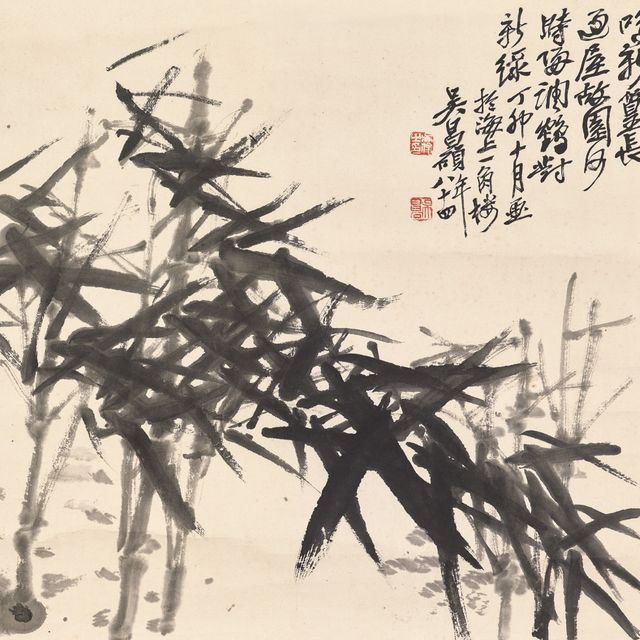 新篁長
過屋故園何
時歸調鶴對
新綠丁卯十月畫
於海上一角樓
吳昌碩年八十四